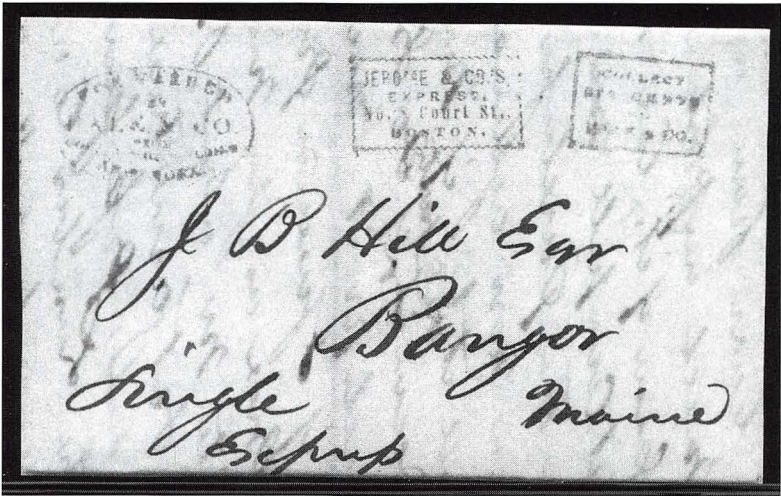 FORWARDED
BY
& CO
JEROME & CO'S.
EXPRESS.
No. Court St.,
BOSTON.
COLLECT
SIX CENTS
& CO.
J. B Hill Esqr
Bangor
Maine
Single
Express